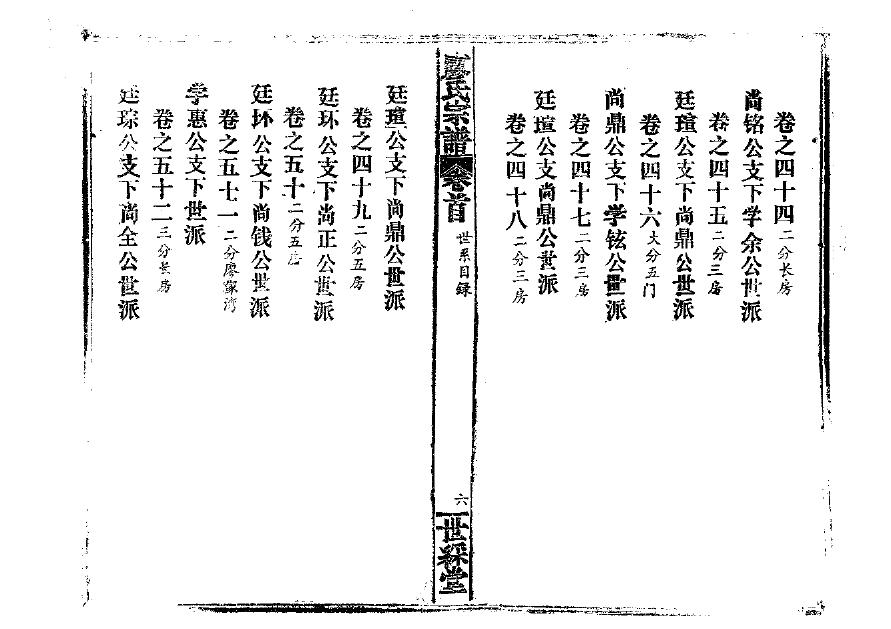 卷之四十四 二分长房
尚铭公支下学余公世派
卷之四十五 二分三房
廷瑄公支下尚鼎公世派
卷之四十六 大分五门
尚鼎公支下学铉公世派
卷之四十七 二分三房
廷瑄公支尚鼎公世派
卷之四十八 二分三房
廖氏宗譜 卷首 世系目録 六 世綵堂
廷瑄公支下尚鼎公世派
卷之四十九 二分五房
廷环公支下尚正公世派
卷之五十 二分五房
廷环公支下尚钱公世派
卷之五十一 二分廖家湾
学惠公支下世派
卷之五十二 三分长房
廷琮公支下尚全公世派